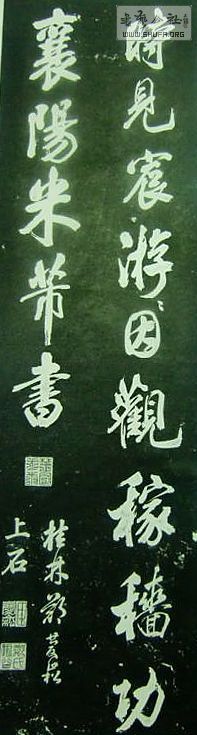 時見宸游因觀稼穡功
襄陽米芾書
桂林
上石
WWW.SHUFA.ORG